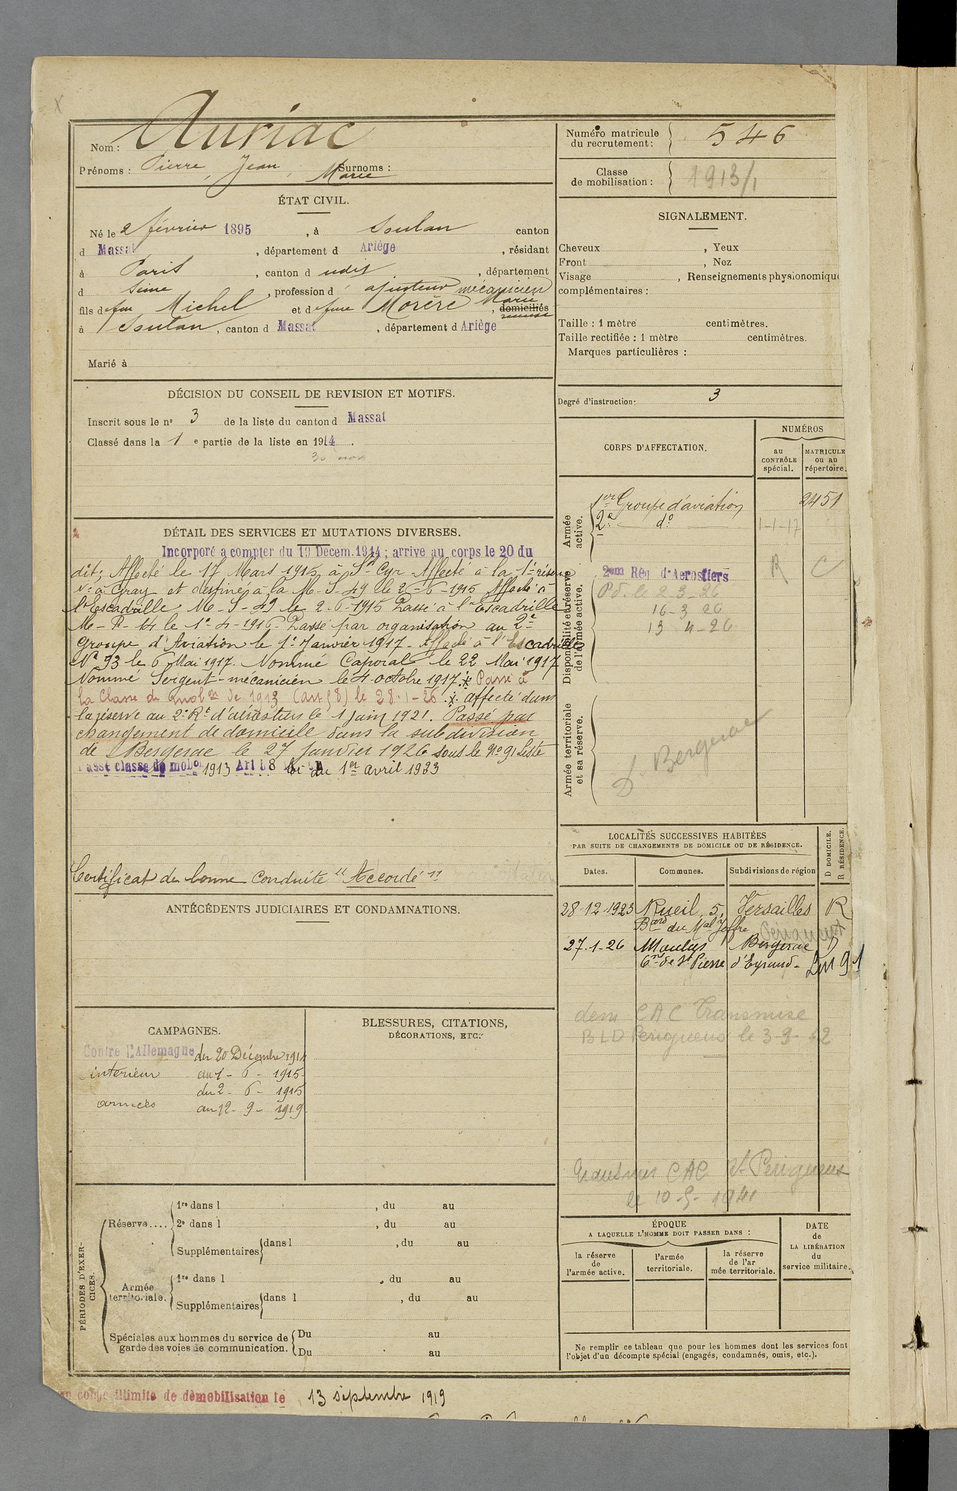 Nom : Auriac
Prénoms : Pierre, Jean, Marie Surnoms :
Numéro matricule du recrutement : 546
Classe de mobilisation : 1913/1
ÉTAT CIVIL.
Né le 2 février 1895, à Soulan canton
d Massat, département d Ariège, résidant
à Paris, canton d udit, département
d Seine, profession d ajusteur mécanicien
fils de feu Michel et de feue Morère Marie, domiciliés
à Soulan, canton d Massat, département d Ariège
Marié à
SIGNALEMENT.
Cheveux , Yeux
Front , Nez
Visage , Renseignements physionomiqu
complémentaires :
Taille : 1 mètre centimètres.
Taille rectifiée : 1 mètre centimètres.
Marques particulières :
Degré d'instruction : 3
DÉCISION DU CONSEIL DE REVISION ET MOTIFS.
Inscrit sous le n° 3 de la liste du canton d Massat
Classé dans la 1e partie de la liste en 1914.
CORPS D'AFFECTATION.
NUMÉROS
au CONTRÔLE spécial.
MATRICULE ou au répertoire.
Armée active.
1er Groupe d'aviation 2451
2e d° 1-1-17
Disponibilité et réserve de l'armée active.
2eme Rég d'Aerostiers R C
P.d. le 2-3-26
16-3 26
13 4-26
Armée territoriale et sa réserve.
D. Bergerac
DÉTAIL DES SERVICES ET MUTATIONS DIVERSES.
Incorporé à compter du 19 Décem. 1914 ; arrivé au corps le 20 du
dit; Affecté le 17 Mars 1915 à St Cyr Affecté à la 1e réserve
Vn à Gray et destiné à la M-S-49 le 2-6-1915 Affecté à
l'Escadrille M-S-49 le 2-6-1915 Passé à l'Escadrille
Passé par organisation au 2e
Groupe d'Aviation le 1er Janvier 1917. Affecté à l'Escadrille
N° 93 le 6 Mai 1917. Nommé Caporal le 22 Mai 1917
Nommé Sergent-mécanicien le 4 octobre 1917. * Passé à
la Classe de mobon de 1913 (art 58) le 28-1-26 .*. affecté dans
la réserve au 2e Rt d'aérostiers le 1 juin 1921. Passé par
changement de domicile dans la subdivision
de Bergerac le 27 Janvier 1926 sous le N° 91 Liste
Passé classe de mobon 1913 Art 58 du 1er avril 1923
Certificat de bonne conduite "Accordé"
LOCALITÉS SUCCESSIVES HABITÉES
PAR SUITE DE CHANGEMENTS DE DOMICILE OU DE RÉSIDENCE.
Dates. Communes. Subdivisions de région
D DOMICILE. R RÉSIDENCE.
28-12-1923 Rueil, 5, Versailles R
Bard du Mal Joffre
27-1-26 Moulin Bergerac D
Cne de St Pierre d'Eyraud
dem CAC Transmise
BLD Périgueux le 3-9-42
Transmis CAC St Périgueux
le 10-5-1941
ANTÉCÉDENTS JUDICIAIRES ET CONDAMNATIONS.
CAMPAGNES.
Contre l'Allemagne du 20 Décembre 1914
intérieur au 1-6-1915
du 2-6-1915
armées au 12-9-1919
BLESSURES, CITATIONS,
DÉCORATIONS, ETC.
PÉRIODES D'EXERCICES.
Réserve....
1re dans l , du au
2e dans l , du au
Supplémentaires dans l , du au
Armée territoriale.
1re dans l , du au
Supplémentaires dans l , du au
Spéciales aux hommes du service de garde des voies de communication.
Du au
Du au
ÉPOQUE
A LAQUELLE L'HOMME DOIT PASSER DANS :
la réserve de l'armée active.
l'armée territoriale.
la réserve de l'armée territoriale.
DATE de LA LIBÉRATION du service militaire.
Ne remplir ce tableau que pour les hommes dont les services font
l'objet d'un décompte spécial (engagés, condamnés, omis, etc.).
congé illimité de démobilisation le 13 septembre 1919